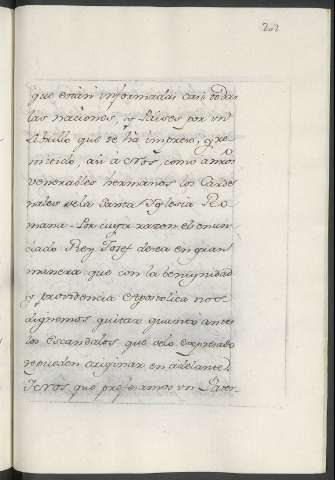 202
que están informadas casi todas
las naciones, y Paises por un
Librillo que se ha impreso, y re-
mitido, así a Nos, como a nros
venerables hermanos los Carde-
nales de la Santa Yglesia Ro-
mana. Por cuya razon el enun-
ciado Rey Josef desea en gran
manera que con la benignidad
y providencia Apostolica nos
dignemos quitar quanto antes
los escandalos que de lo expresado
se pueden originar en adelante.
Y Nos que profesamos un Pater-